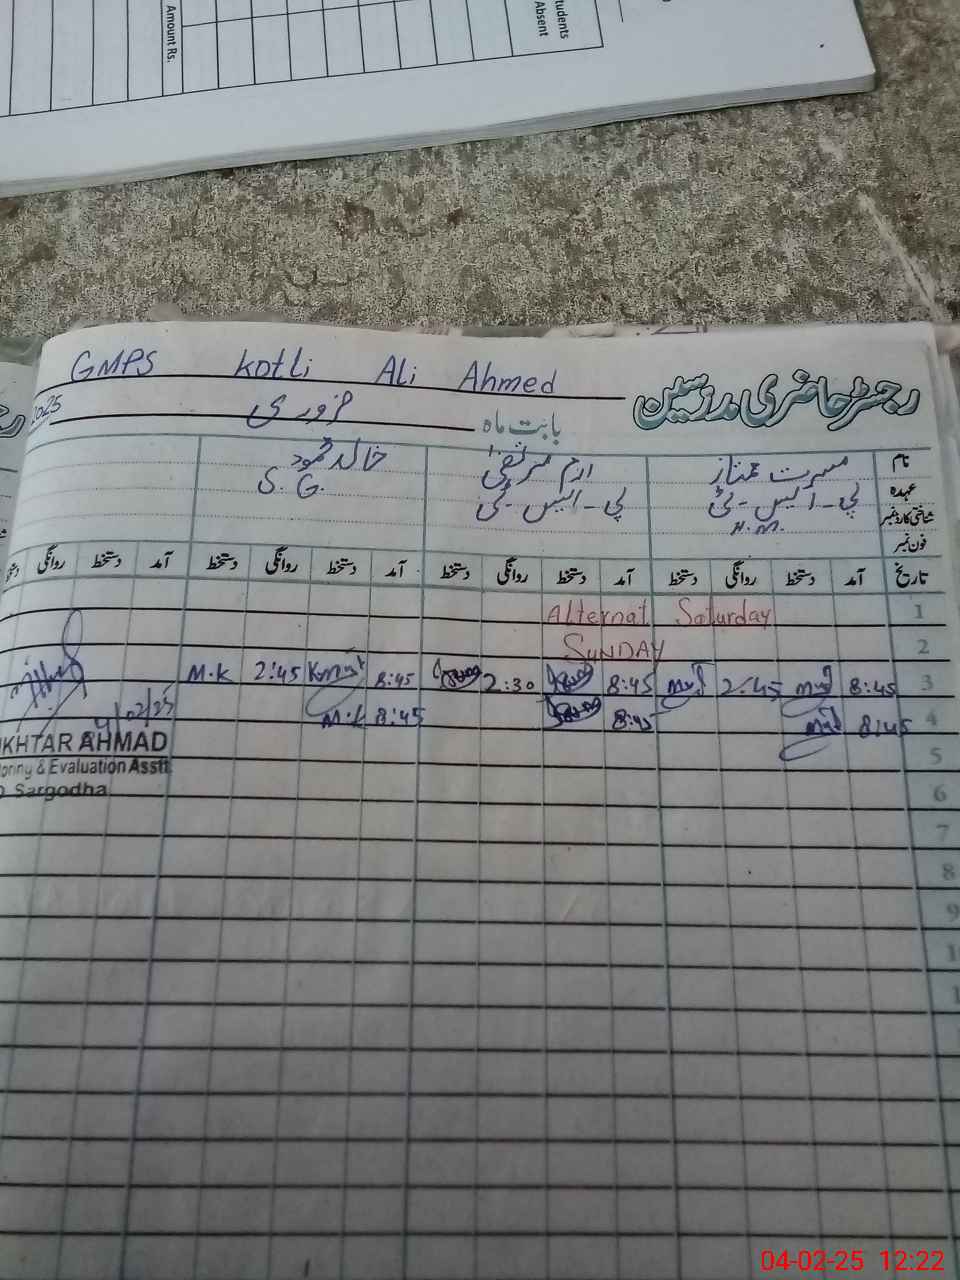 Amount Rs.
Absent
tudents
GMPS Kotli Ali Ahmed
رجسٹر حاضری مدرسین
بابت ماہ فروری 2025
نام مسرت ممتاز ارم مرتضیٰ خالد محمود
عہدہ پی۔ایس۔ٹی پی۔ایس۔ٹی S.G.
شناختی کارڈ نمبر H.M.
فون نمبر
تاریخ آمد دستخط روانگی دستخط آمد دستخط روانگی دستخط آمد دستخط روانگی دستخط آمد دستخط روانگی
1 Alternat Saturday
2 SUNDAY
3 8:45 2:45 8:45 2:30 8:45 2:45 M.K
4 8:45 8:45 8:45 M.K
4/02/25
5
KHTAR AHMAD
oring & Evaluation Asstt
Sargodha
6
7
8
9
04-02-25 12:22